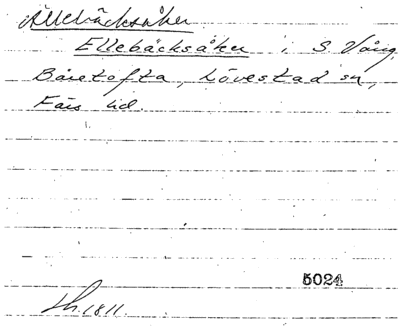 Ällebäcksåker
Ellebäcksåker i S. Vång,
Båretofta, Lövestad sn,
Färs hd.
5024
Lh. 1811.